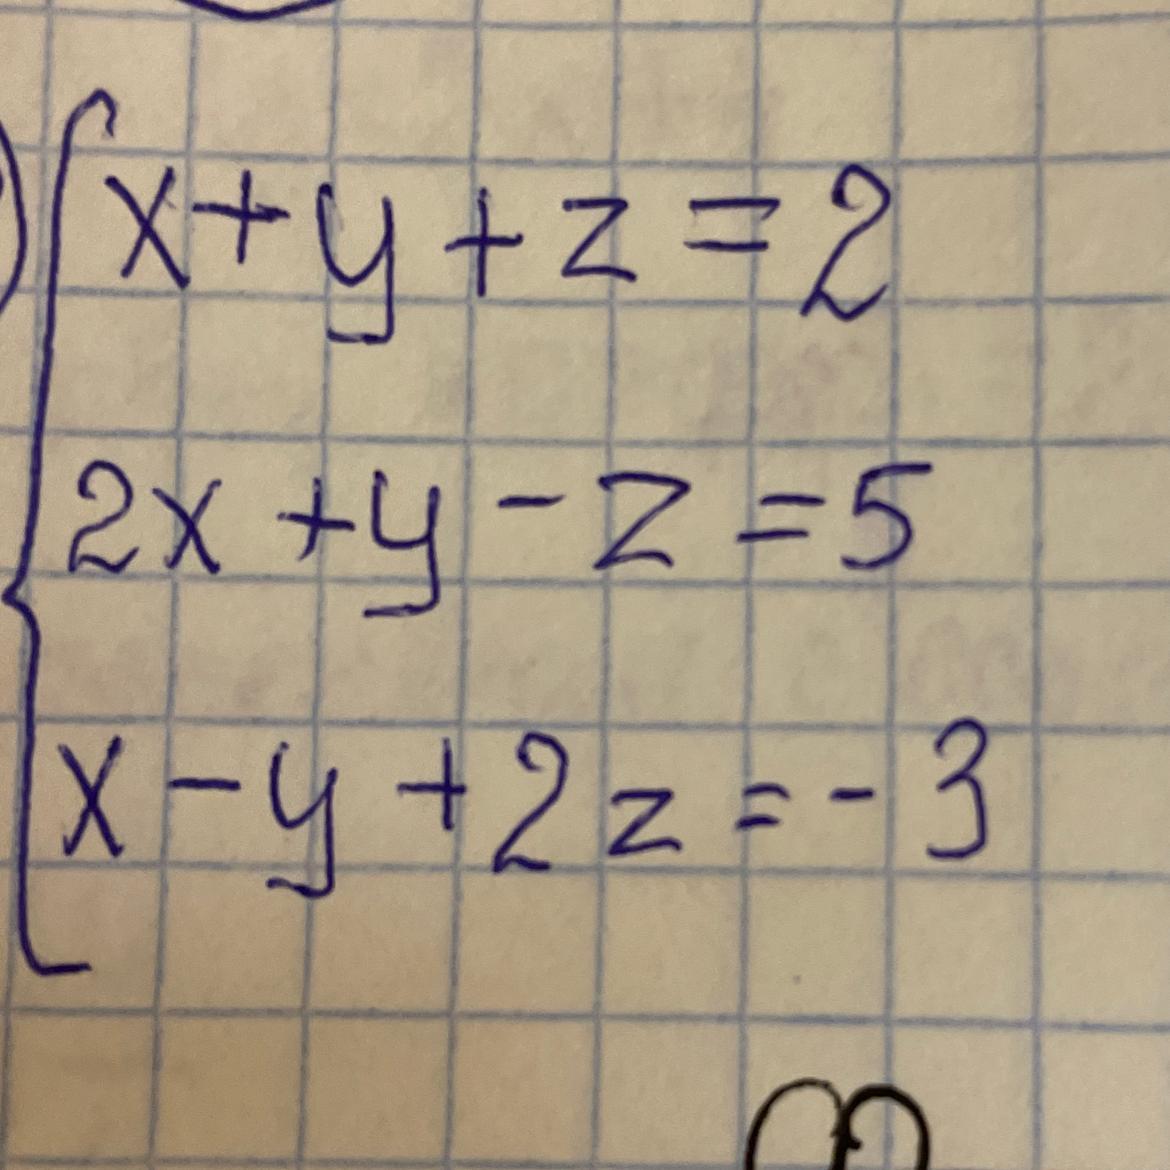 x+y+z=2
2x+y-z=5
x-y+2z=-3